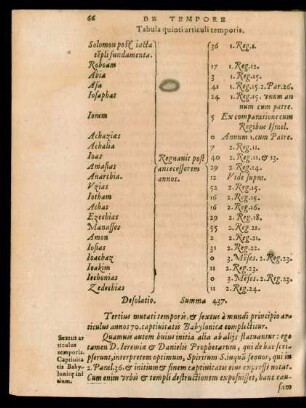 66 DE TEMPORE
Tabula quinti articuli temporis.
Solomon post iacta
tẽpli fundamenta. 36 1. Reg. 1.
Roboam 17 1. Reg. 12.
Abia 3 1. Reg. 15.
Asa 41 1. Reg. 15. 2. Par. 26.
Iosaphat 24 1. Reg. 15. unum an
num cum patre.
Ioram 5 Ex comparatione cum
Regibus Israel.
Achazias 0 Annum 1. cum Patre.
Athalia 7 2. Reg. 11.
Ioas 40 2. Reg. 11. & 13.
Regnauit post
antecessorem
annos.
Amasias 29 2. Reg. 14.
Anarchia. 12 Vide supra.
Vzias 52 2. Reg. 15.
Iotham 16 2. Reg. 15.
Achas 16 2. Reg. 16.
Ezechias 29 2. Reg. 18.
Manasses 55 2. Reg. 21.
Amon 2 2. Reg. 21.
Iosias 31 2. Reg. 22.
Ioachaz 0 3. Mẽses. 2. Reg. 23.
Ioakim 11 2. Reg. 23.
Iechonias 0 3. Mẽses. 2. Reg. 23.
Zedechias 11 2. Reg. 24.
Desolatio. Summa 437.
Tertius mutati temporis, & sextus à mundi principio ar-
ticulus annos 70. captiuitatis Babylonicæ complectitur.
Sextus ar
ticulus
temporis.
Captiuita
tis Baby-
lonicæ in
itium.
Quamuis autem huius initia alta ab alijs statuantur: ego
tamen D. Ieremiæ & Danielis Prophetarum, qui de hac scri-
pserunt, interpretem optimum, Spiritum S. inquã sequor, qui in
2. Paral. 36. & initium & finem captiuitatis eius expressit notat.
Cum enim vrbis & templi destructionem exposuisset, hanc cau-
sam